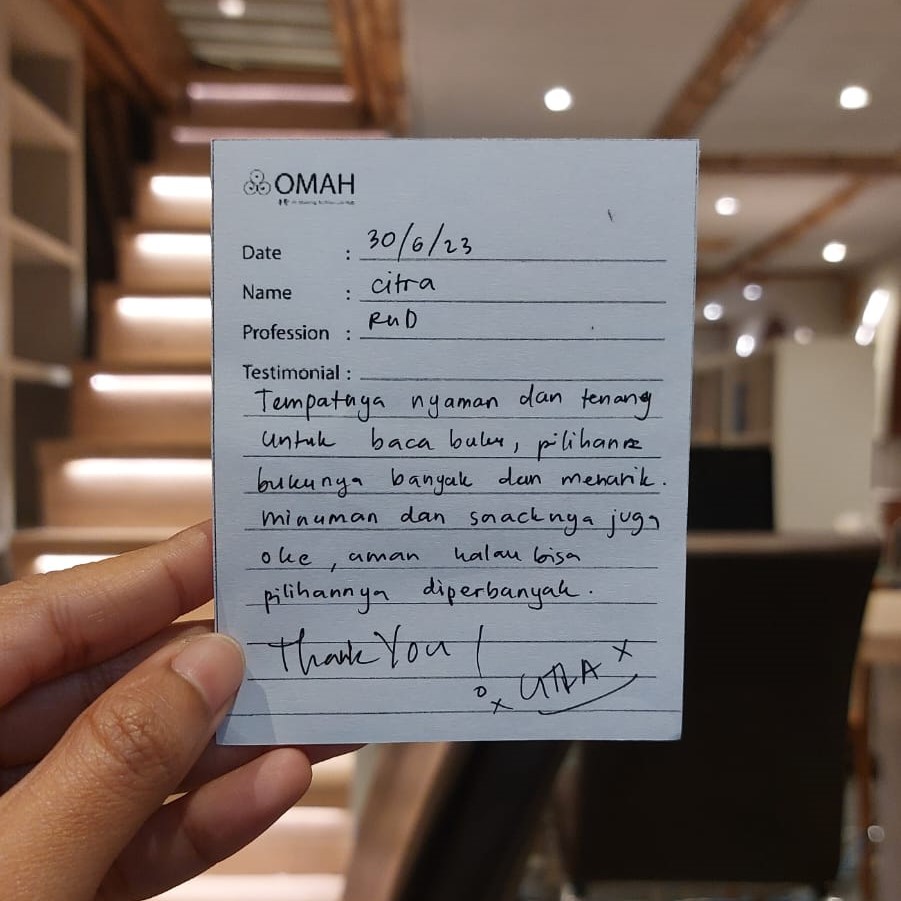 OMAH
Date : 30/6/23
Name : citra
Profession : RnD
Testimonial :
Tempatnya nyaman dan tenang
untuk baca buku, pilihan
bukunya banyak dan menarik.
minuman dan snacknya juga
oke, aman kalau bisa
pilihannya diperbanyak.
Thank You!
x CITRA x